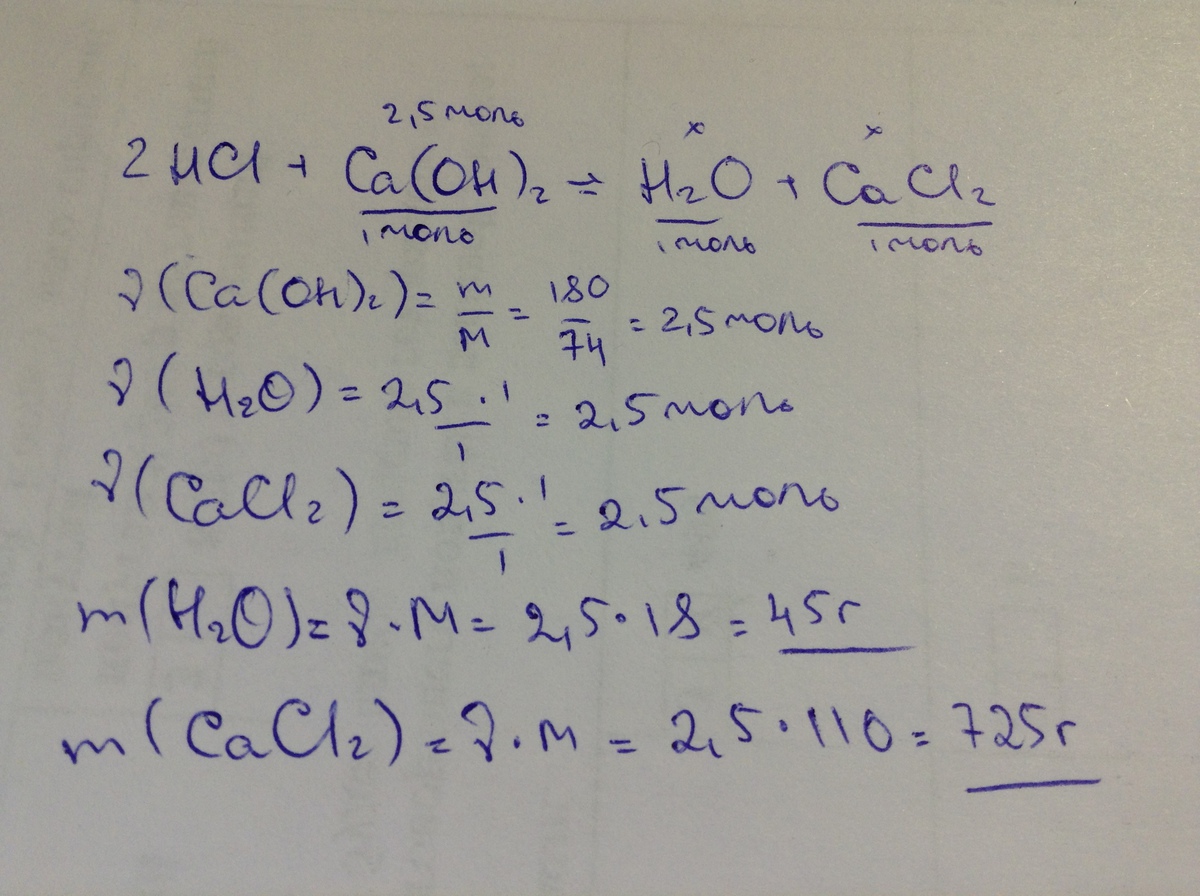 2,5 моль
x x
2 HCl + Ca(OH)₂ = H₂O + CaCl₂
1 моль 1 моль 1 моль
ν(Ca(OH)₂) = m/M = 180/74 = 2,5 моль
ν(H₂O) = 2,5 · 1/1 = 2,5 моль
ν(CaCl₂) = 2,5 · 1/1 = 2.5 моль
m(H₂O) = ν · M = 2,5 · 18 = 45г
m(CaCl₂) = ν · M = 2,5 · 110 = 725г